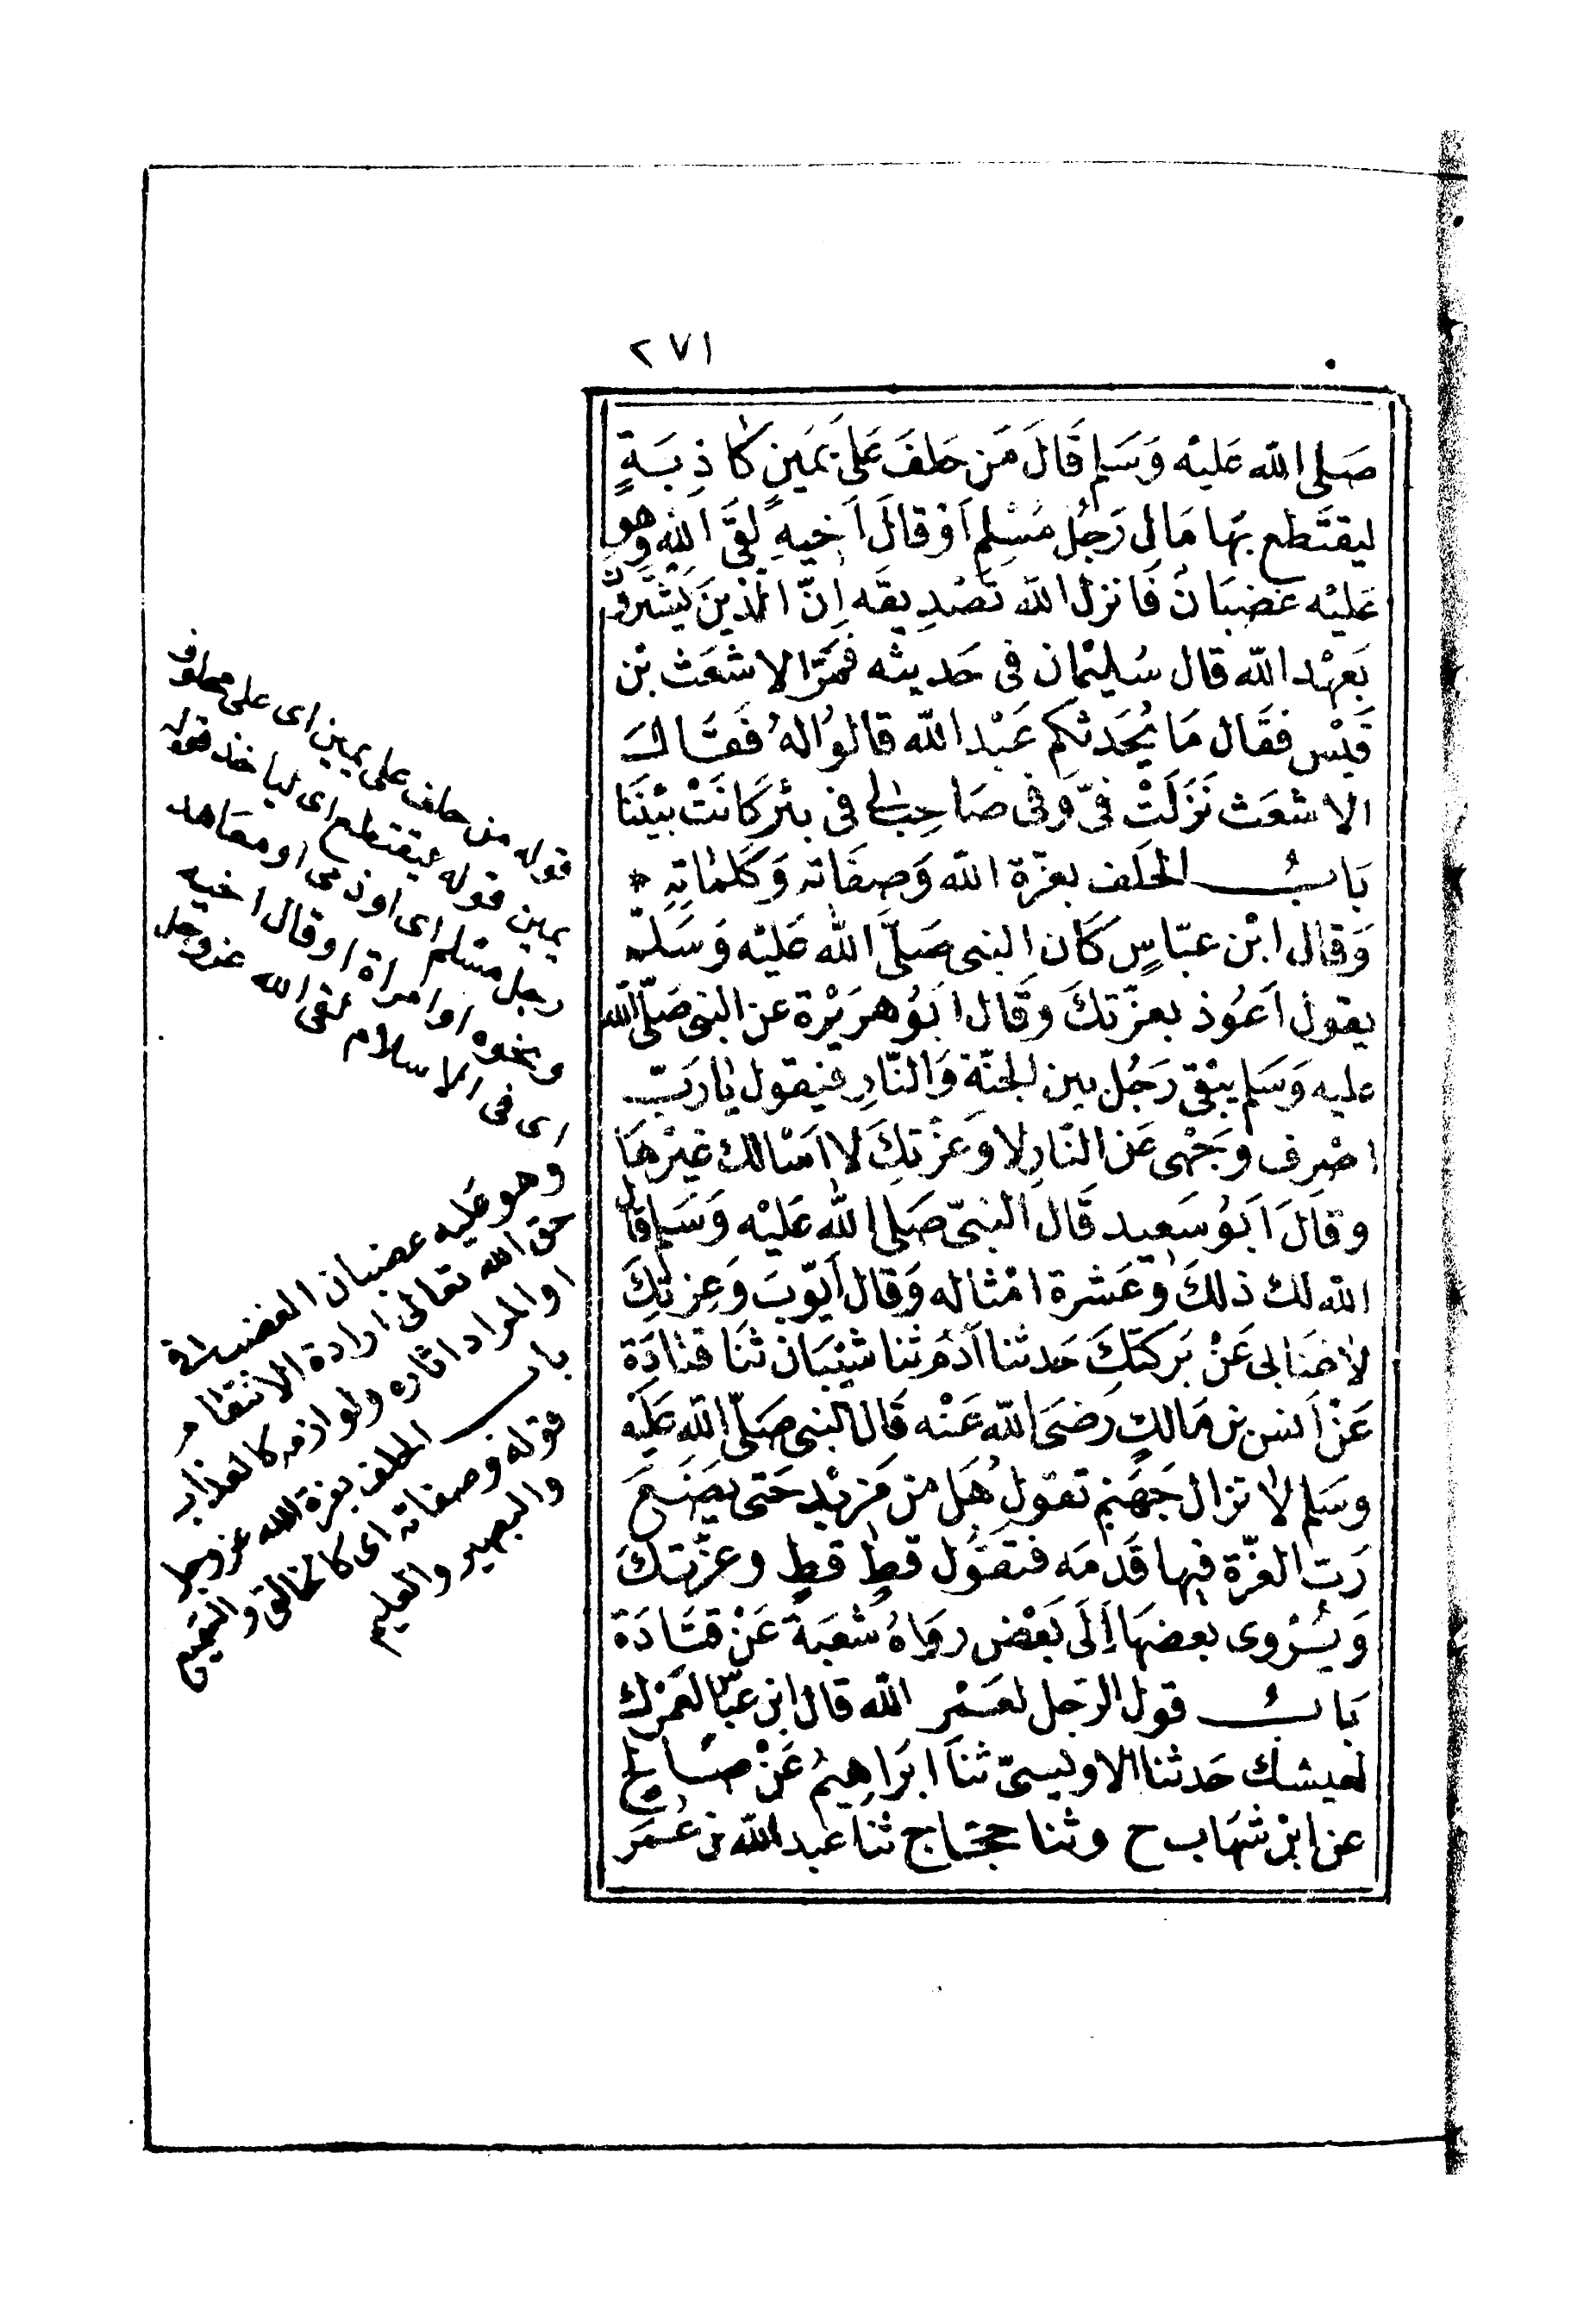 ٢٧١
صَلى الله عَليْه وَسَلم قَالَ مَن حَلفَ عَلىَ يَمَينٍ كَاذِبَةٍ
ليقتَطع بهَا مَال رَجُل مُسْلِم اَوْ قالَ اَخيهِ لقىَ الله وَهو
عَليْه غضبَانَ فَانزل الله تصْدِيقَه اِنّ الَّذينَ يَشْتَروُنَ
بَعهْد الله قال سُليْمان فى حَديثه فمَرَّ الاشعَث بْن
قَيْس فقَال مَا يُحَدثكم عَبْد الله قالوُا لهُ فَقَال
الاشعَث نَزَلَتْ فىّ وَفى صَاحِب لى فى بئر كَانَتْ بَيْنَنَا
بَابُ الحَلَف بعزّة الله وَصِفَاته وَكَلمَاتِهِ *
وَقال ابْن عبّاسٍ كَان النبى صَلَّى الله عَليْه وَسَلم
يقول اَعُوذ بعزّتكَ وَقال اَبوُ هرَيْرة عن النبى صَلّى الله
عليه وَسَلم يبْقى رَجُل بين الجنّة وَالنّارِ فيقول يَا رَبّ
اصْرِف وَجْهى عَن النّارِ لا وَعزّتكَ لا اَسْالك غيْرهَا
وقَالَ اَبوُ سَعِيد قَال النبىّ صَلى الله عَليْهِ وَسَلم قال
الله لك ذلكَ وَعَشرة امْثاله وَقال اَيوّبَ وَعِزتكَ
لاغنَا لى عَنْ بَركتكَ حَدثنا آدَم ثنا شيْبَان ثنَا قتادَة
عَنْ اَنس بن مَالك رضىَ الله عَنْه قَال النبى صَلّى الله عَليْه
وسَلم لا تزال جَهَنم تقول هَل من مَزيْد حَتى يضَعَ
رَبّ العزّة فيها قَدَمَه فتقوُل قطٍ قطٍ وعزّتكَ
وَيُزْوى بعضهَا اِلَى بَعْض رَوَاهُ شعْبَة عَنْ قتَادَة
بَابُ قول الرّجل لعَمْر الله قال ابن عبّاس لعَمْرك
لعيشك حَدثنا الاويسىّ ثنَا ابرَاهِيمُ عَنْ صَالح
عن ابْن شهَاب ح وثنا حجّاج ثنا عبد الله بن عُمَر
قوله من حلف على يمين اى على محلوف
يمين قوله ليقتطع اى لياخذ قوله
رجل مسلم اى او ذمى او معاهد
ونحوه او امراة او قال اخيه
اى فى الاسلام لقى الله عز وجل
وهو عَليه غضبان الغضب فى
حق الله تعالى ارادة الانتقام
او المراد اثاره ولوازمه كالعذاب
باب الحلف بعزة الله عز وجل
قوله وصفاته اى كالخالق والسميع
والبصير والعليم